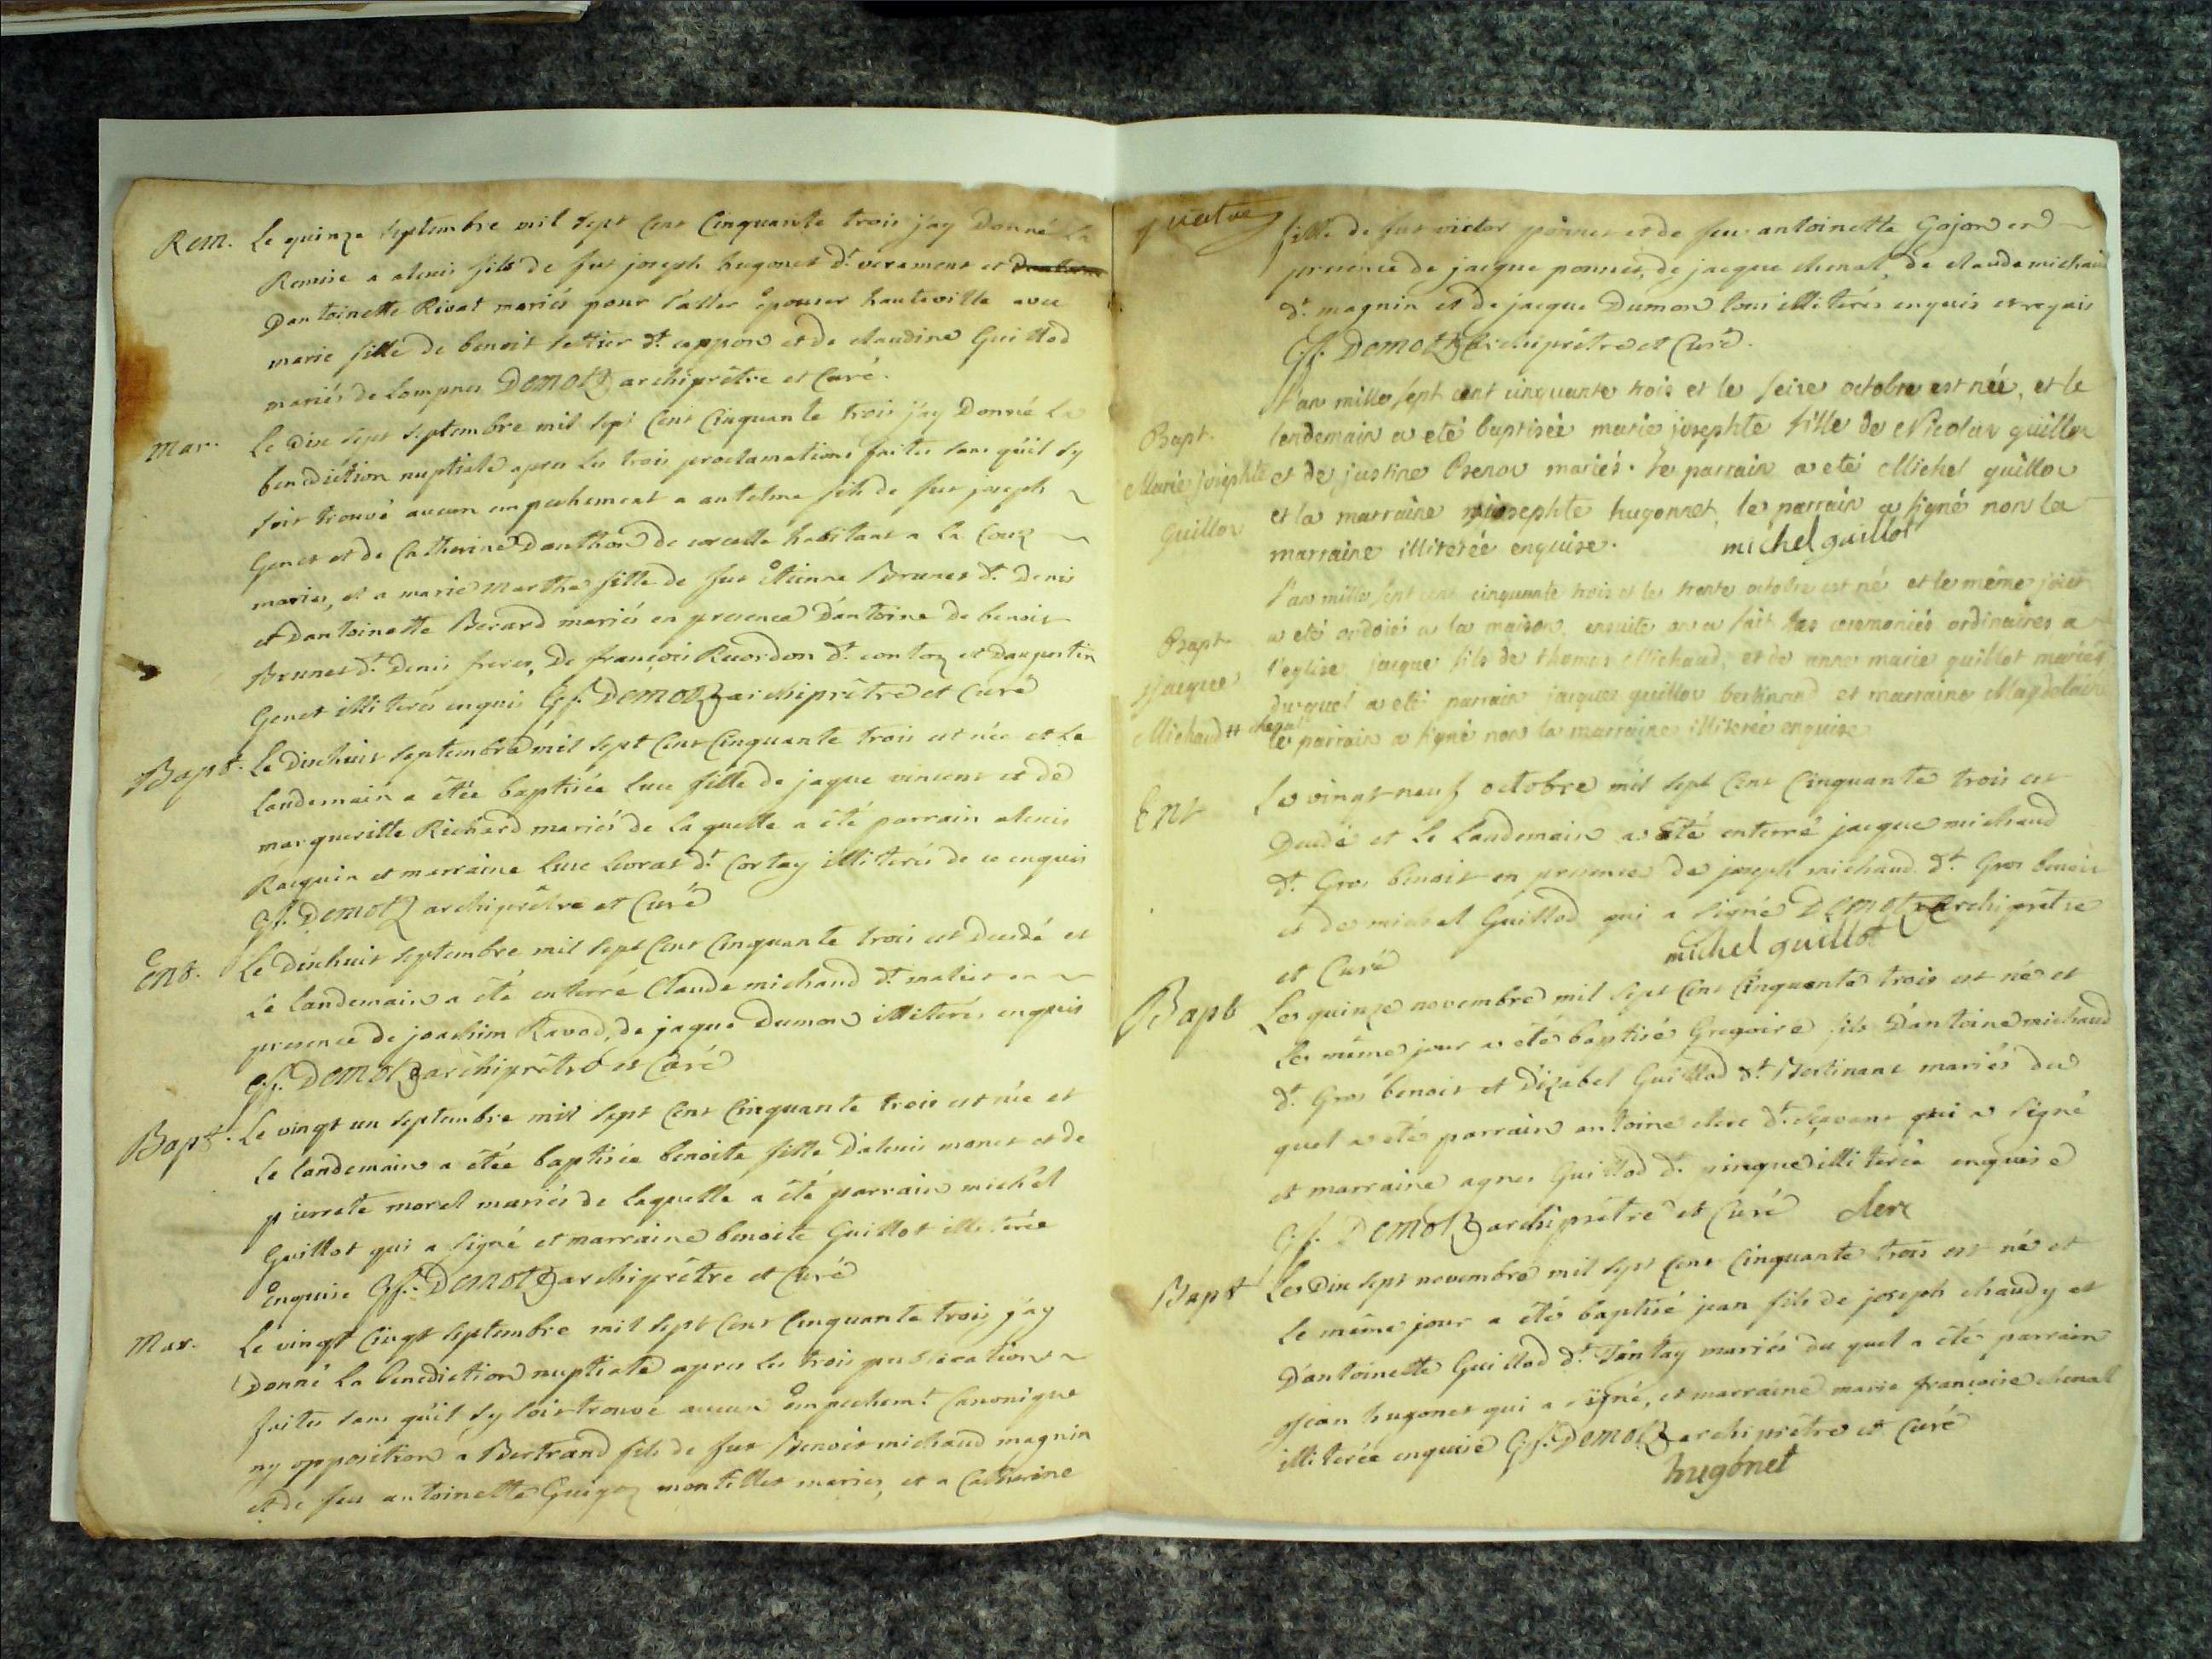 Rem. Le quinze septembre mil sept Cent Cinquante trois j'ay Donné La
Remise a alexis fils de fut joseph hugonet dt. verament et
Dantoinette Rivat mariés pour l'aller épouser hauteville avec
marie fille de benoit settier dt. cappon et de claudine Guillod
mariés de Lompnes Demotz archiprêtre et Curé.
Mar. Le dix sept septembre mil sept Cent Cinquante trois j'ay Donné La
benediction nuptiale apres les trois proclamations faites sans qu'il s'y
soit trouvé aucun empechement a antelme fils de fut joseph
Genet et de Catherine Danthon de corcelle habitant a La Couz
mariés, et a marie Marthe fille de fut étienne Brunet dt. Denis
et Dantoinette Berard mariés en presence d'antoine de benoit
Brunet dt. Denis freres, De françois Reordon dt. conton et D'augustin
Genet illiterés enquis G.f. Demotz archiprêtre et Curé
Bapt. Le dixhuit septembre mil sept Cent Cinquante trois est née et Le
landemain a étée baptisée Luce fille de jaque vincent et de
margueritte Richard mariés de La quelle a été parrain alexis
Racquin et marraine Luce Levrat dt. Cortay illiterés de ce enquis
G.f. Demotz archiprêtre et Curé
Ent. Le dixhuit septembre mil sept Cent Cinquante trois est Decedé et
Le landemain a été enterré Claude michaud dt. matiet en
presence de joachim Ravod, de jaque Dumon illiterés enquis
G.f. Demotz archiprêtre et Curé
Bapt. Le vingt un septembre mil sept Cent Cinquante trois est née et
Le landemain a étée baptisée benoite fille D'alexis monet et de
pierrete morel mariés de laquelle a été parrain michel
Guillot qui a signé et marraine benoite Guillot illiterée
Enquise G.f. Demotz archiprêtre et Curé
Mar. Le vingt Cinq septembre mil sept Cent Cinquante trois j'ay
Donné La benediction nuptiale apres les trois publications
faites sans qu'il s'y soit trouvé aucun Empechemt. Canonique
ny opposition a Bertrand fils de fut Benoit michaud magnin
et de feu antoinette Guigoz montillet mariés, et a Catherine
quatre
fille de fut victor ponnet et de feue antoinette Gojon en
presence de jacque ponnet, de jacque chenal, de claude michaud
dt. magnin et de jacque Dumon tous illiterés enquis et requis
G.f. Demotz archiprêtre et Curé.
Bapt. Marie josephte Guillon
L'an mille sept cent cinquante trois et le seize octobre est née, et le
lendemain a eté baptisée marie josephte fille de Nicolas guillon
et de justine mariés. le parrain a eté Michel guillon
et la marraine josephte hugonnet, le parrain a signé non la
marraine illiterée enquise. michel guillot
Bapt. jacque Michaud
L'an mille sept cent cinquante trois et le trente octobre est né et le même jour
a eté ondoié a la maison, ensuite on a fait les ceremonies ordinaires a
l'eglise, jacque fils de thomas Michaud, et de anne marie guillot mariés
duquel a eté parrain jacques guillon bertinand et marraine Magdelaine
chenal le parrain a signé non la marraine illiterée enquise
Ent Le vingt-neuf octobre mil sept Cent Cinquante trois est
Decedé et Le Landemain a été enterré jacque michaud
dt. Gros benoit en presence de joseph michaud dt. Gros benoit
et de michel Guillod qui a signé Demotz archiprêtre
et Curé michel guillot
Bapt Le quinze novembre mil sept Cent Cinquante trois est né et
Le même jour a été baptisé Gregoire fils D'antoine michaud
dt. Gros benoit et Dizabel Guillod dt. Bertinant mariés du
quel a été parrain antoine clerc dt. qui a signé
et marraine agnes Guillod dt. illiterée enquise
G.f. Demotz archiprêtre et Curé clerc
Bapt Le dix sept novembre mil sept Cent Cinquante trois est né et
Le même jour a été baptisé jean fils de joseph chaudy et
D'antoinette Guillod dt. Tantay mariés du quel a été parrain
jean hugonet qui a signé, et marraine marie françoise chenal
illiterée enquise G.f. Demotz archiprêtre et Curé
hugonet